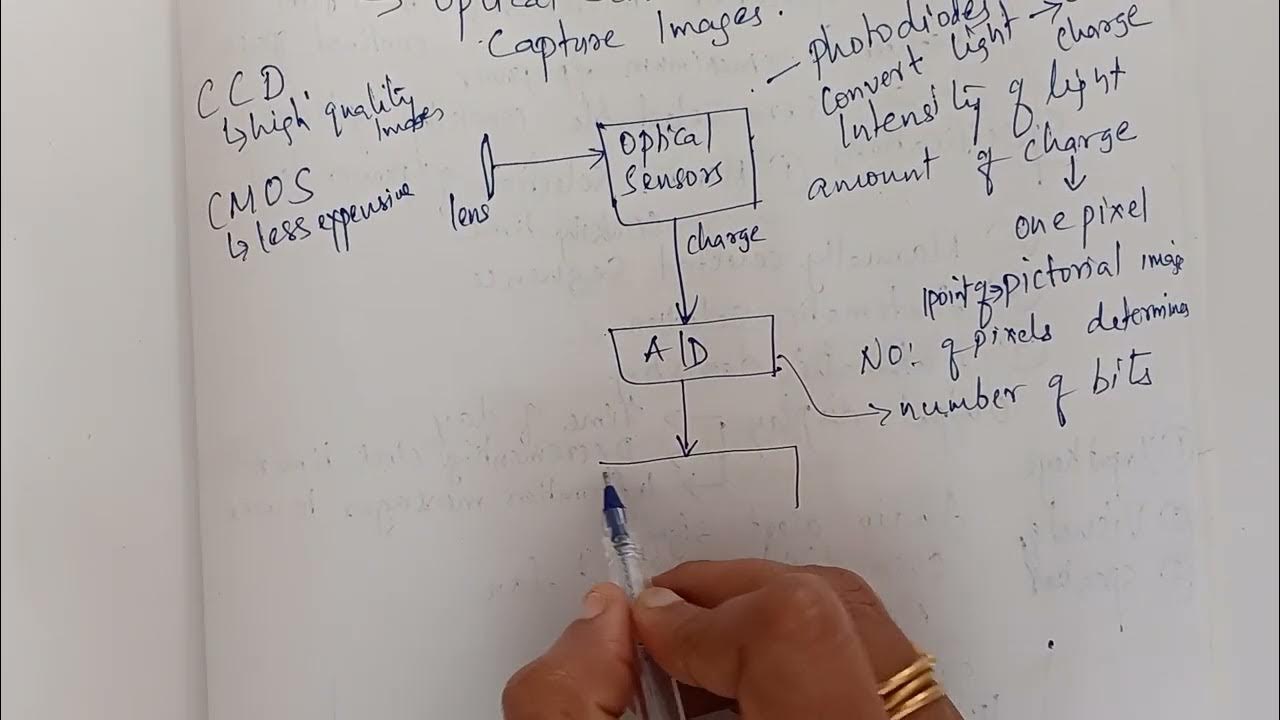 → Optical
Capture Images.
CCD
↳ high quality
Images
CMOS
↳ less expensive
lens
Optical
Sensors
charge
A/D
— photodiodes
convert light →
charge
Intensity of light
amount of charge
↓
one pixel
1 point of → pictorial image
NO: of pixels determines
→ number of bits